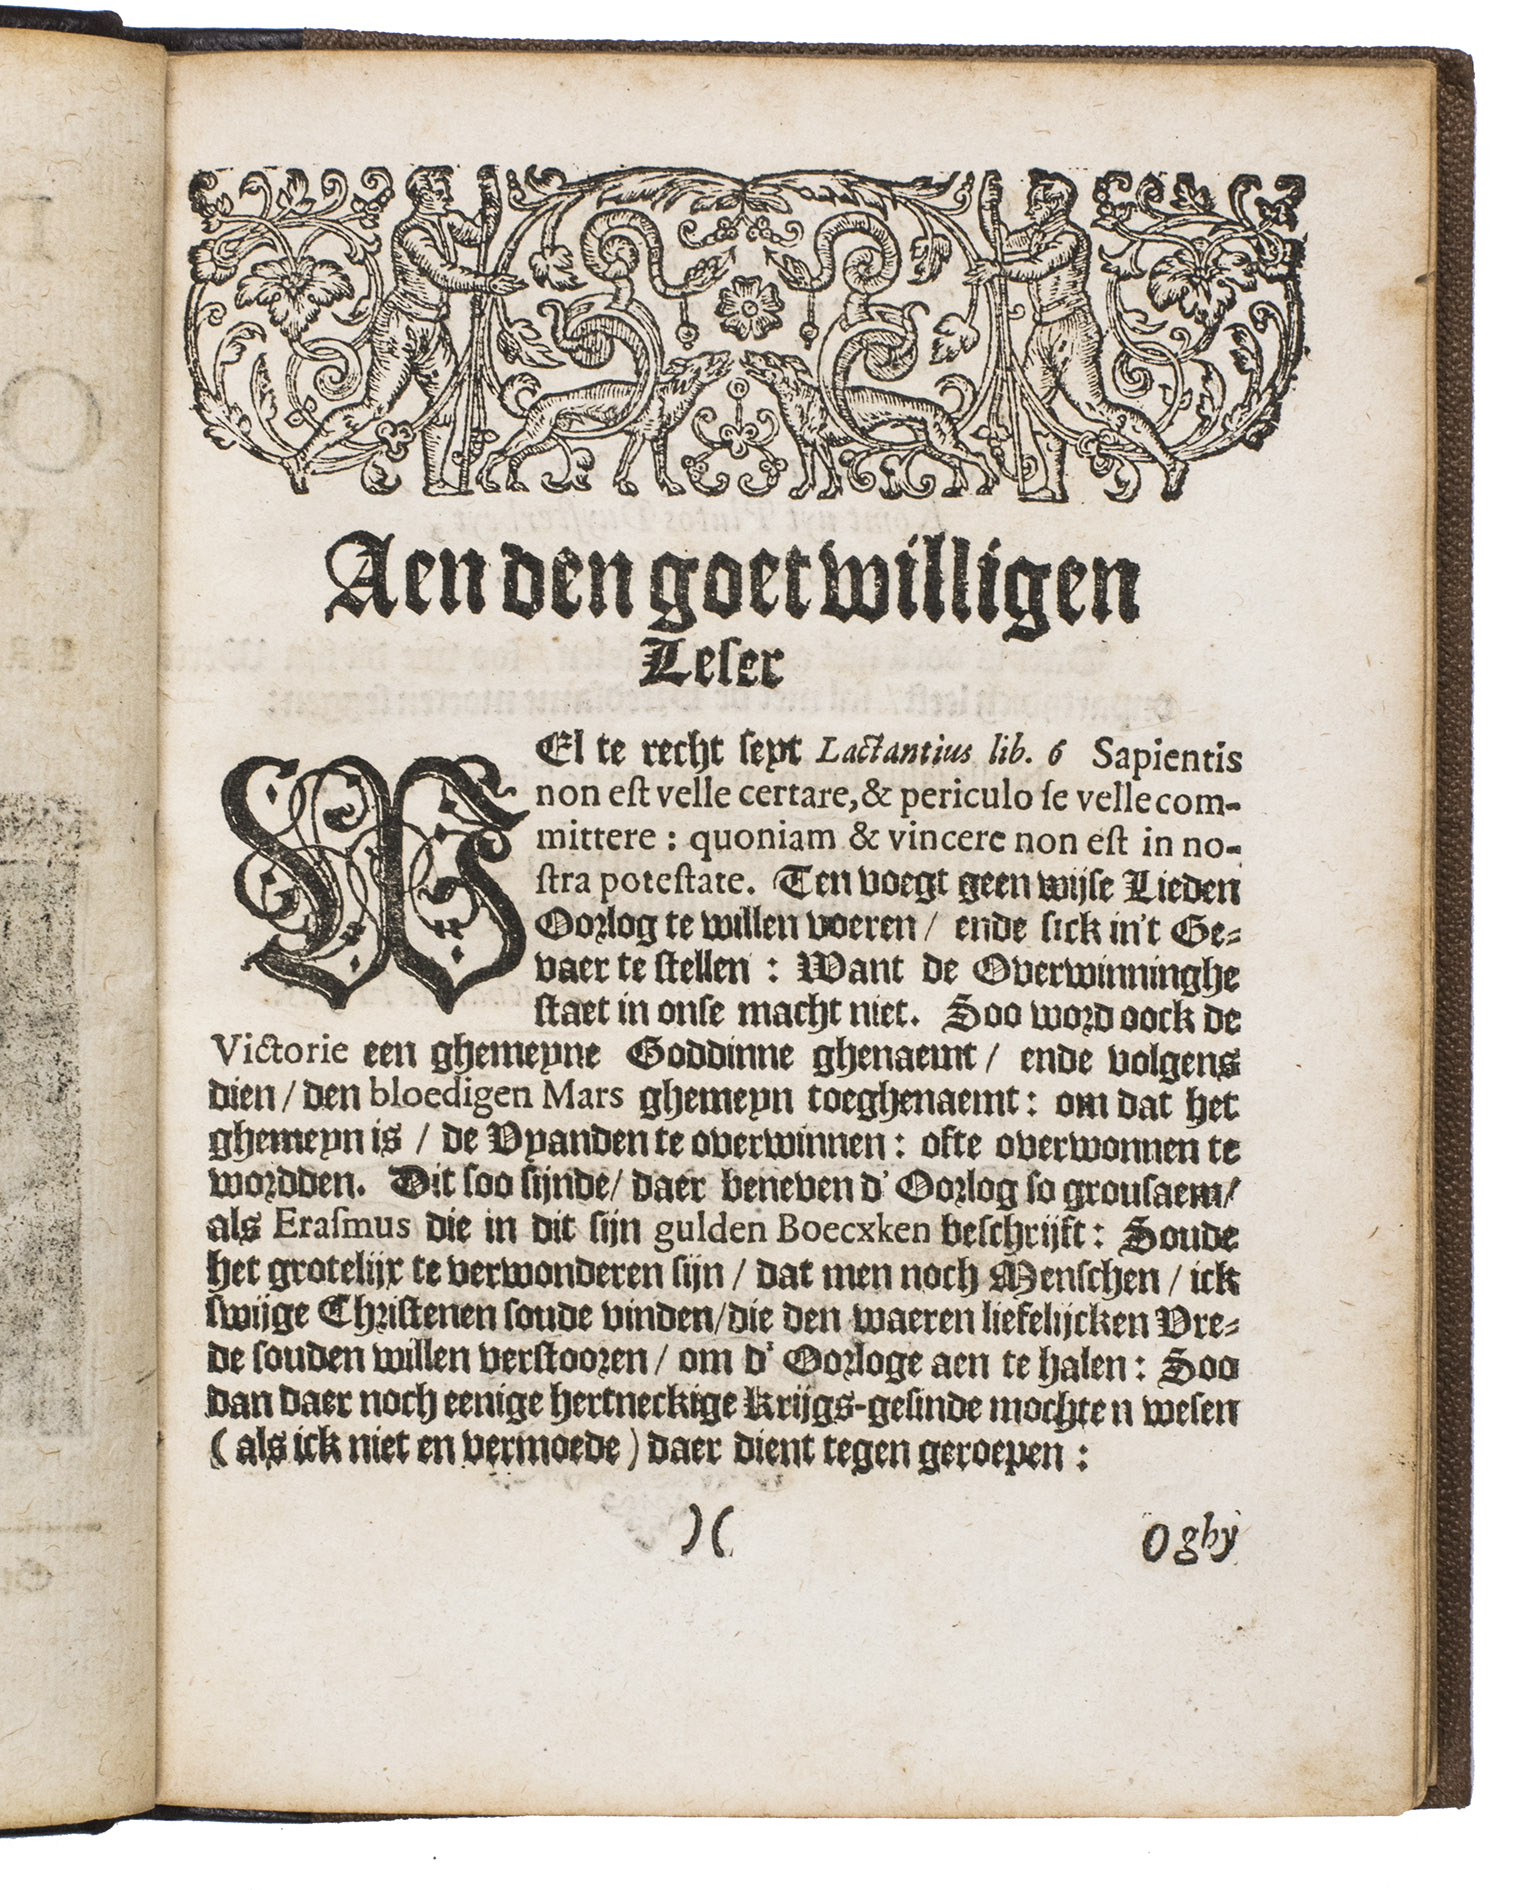 Aen den goetwilligen
Leser
WEl te recht seyt Lactantius lib. 6 Sapientis
non est velle certare, & periculo se velle com-
mittere : quoniam & vincere non est in no-
stra potestate. Ten voegt geen wijse Lieden
Oorlog te willen voeren / ende sick in't Ge-
vaer te stellen : Want de Overwinninghe
staet in onse macht niet. Soo word oock de
Victorie een ghemeyne Goddinne ghenaemt / ende volgens
dien / den bloedigen Mars ghemeyn toeghenaemt : om dat het
ghemeyn is / de Vyanden te overwinnen : ofte overwonnen te
wordden. Dit soo sijnde / daer beneven d' Oorlog so grousaem /
als Erasmus die in dit sijn gulden Boecxken beschrijft : Soude
het grotelijx te verwonderen sijn / dat men noch Menschen / ick
swijge Christenen soude vinden / die den waeren liefelijcken Vre-
de souden willen verstooren / om d' Oorloge aen te halen : Soo
dan daer noch eenige hertneckige Krijgs-gesinde mochten wesen
( als ick niet en vermoede ) daer dient tegen geroepen :
)(
O ghy